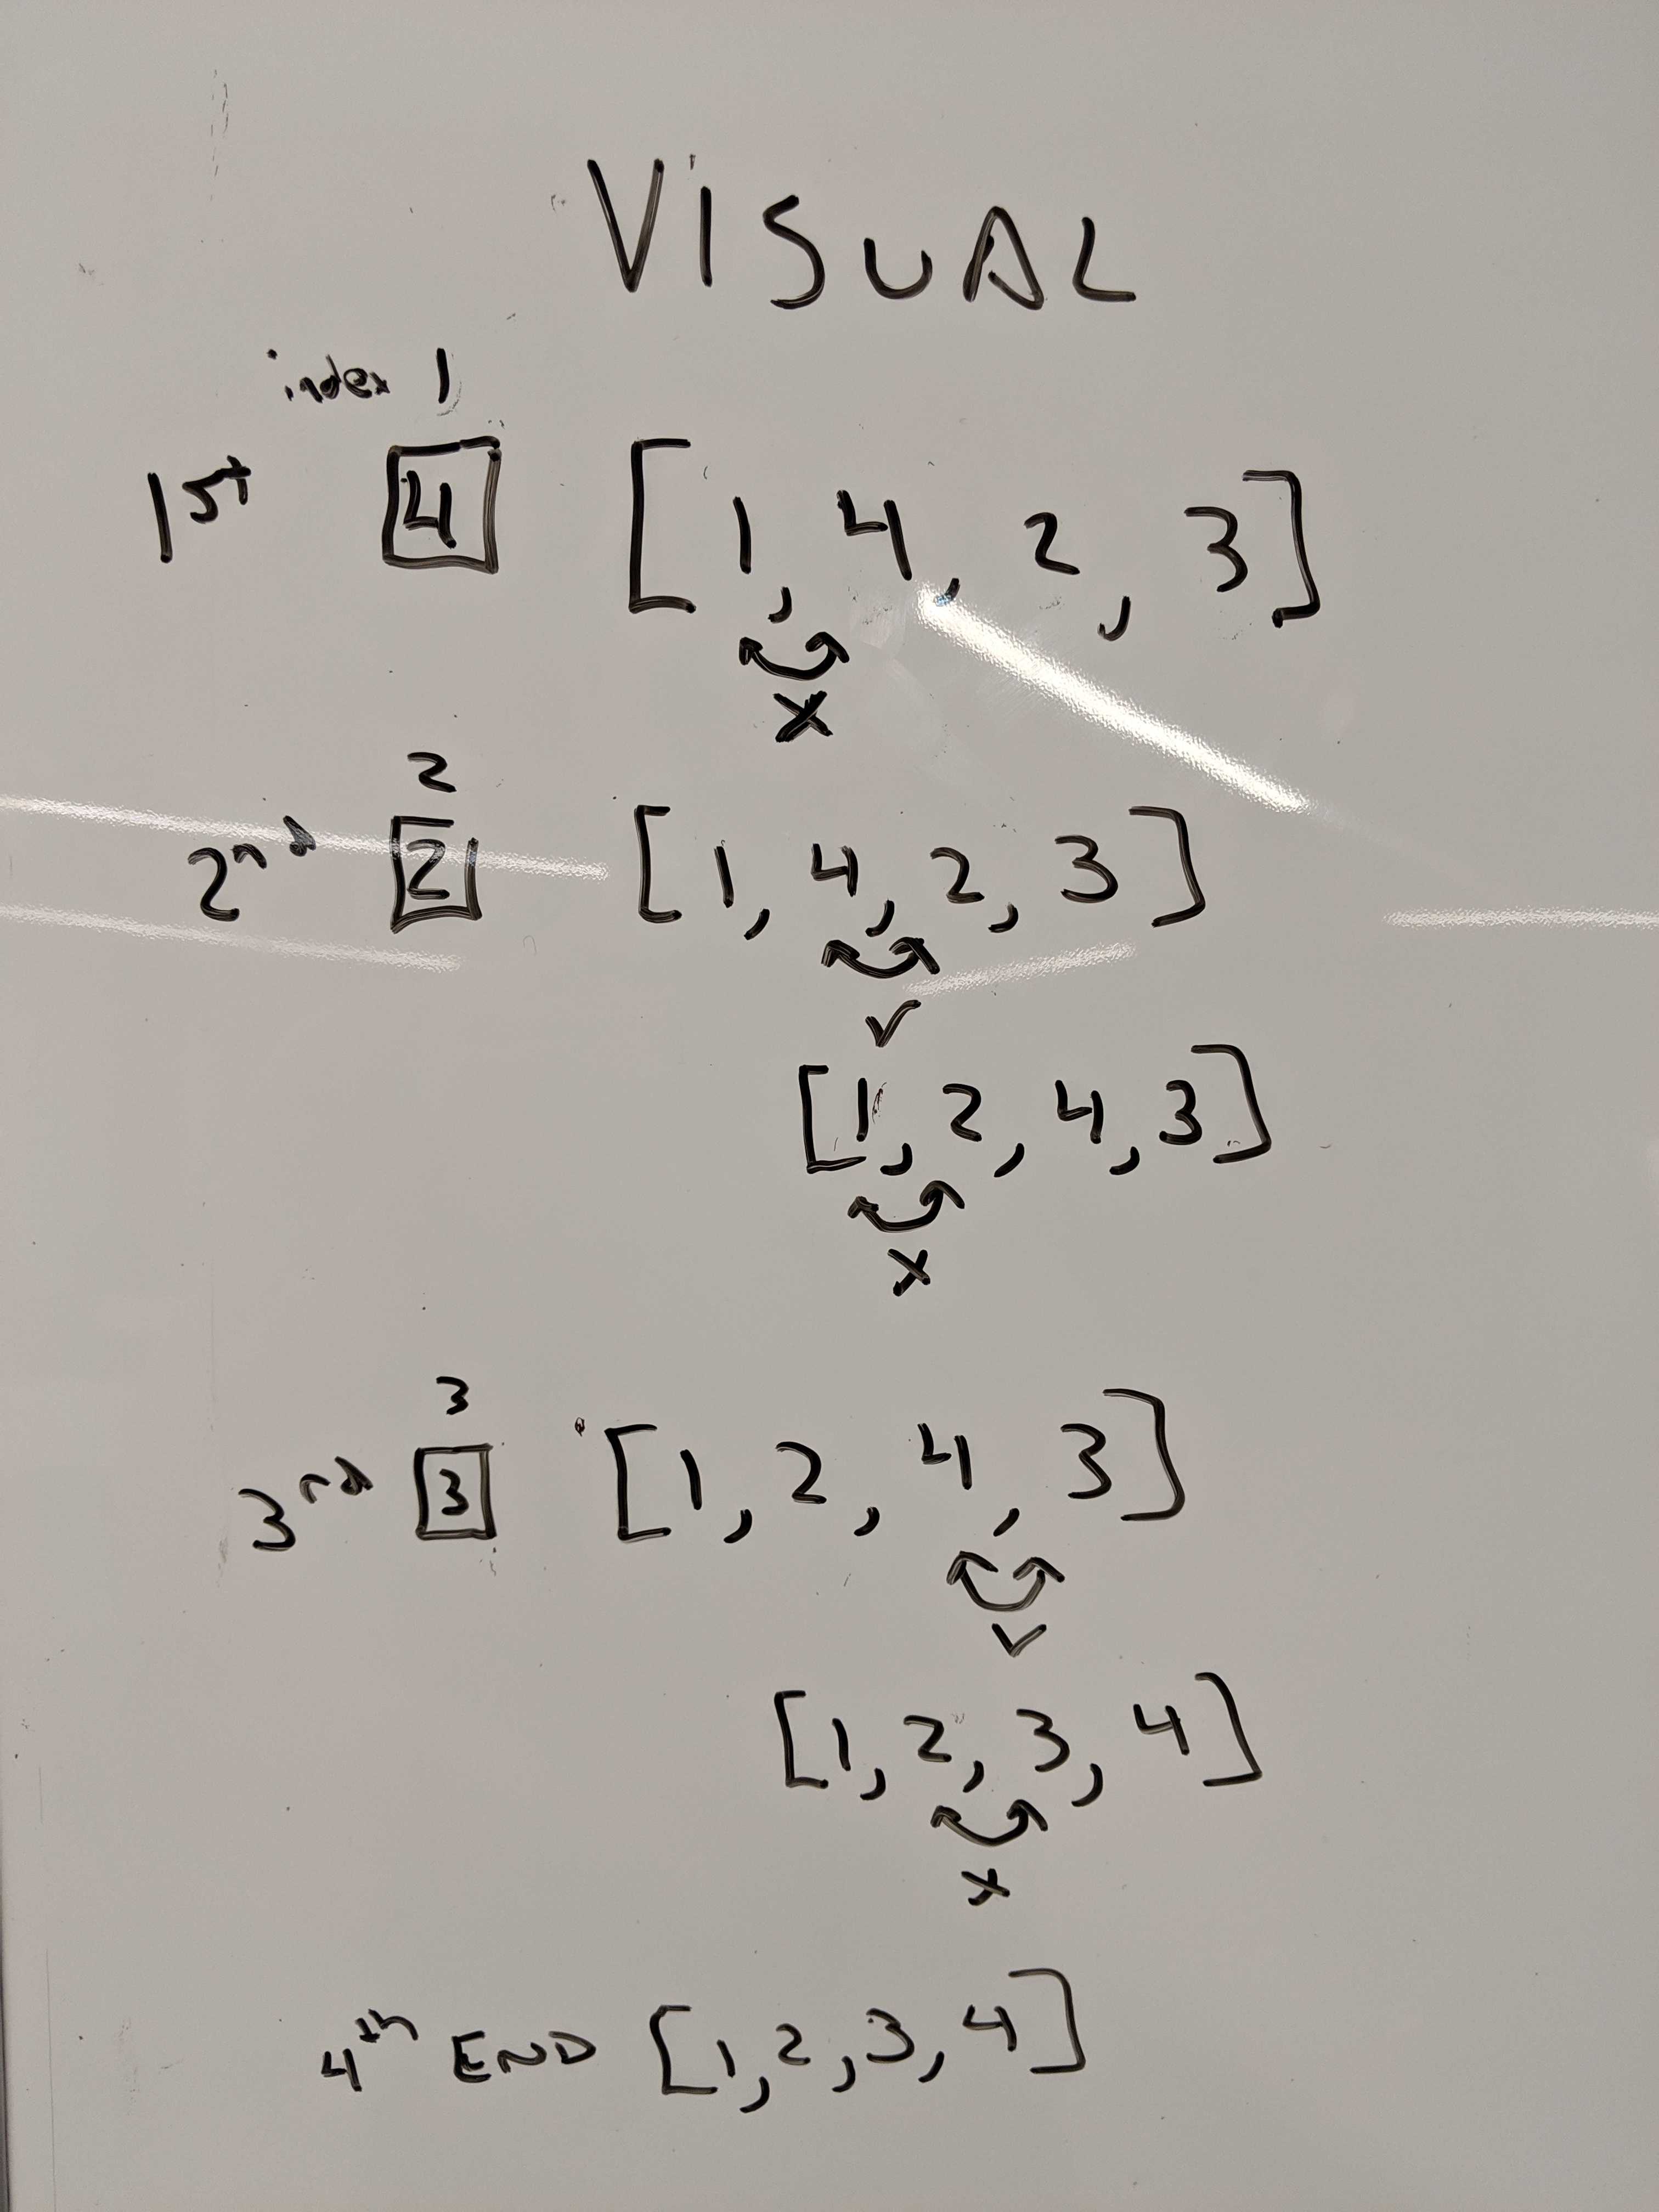 VISUAL
index 1
1st 4 [1, 4, 2, 3]
x
2
2nd 2 [1, 4, 2, 3]
✓
[1, 2, 4, 3]
x
3
3nd 3 [1, 2, 4, 3]
✓
[1, 2, 3, 4]
x
4th END [1, 2, 3, 4]